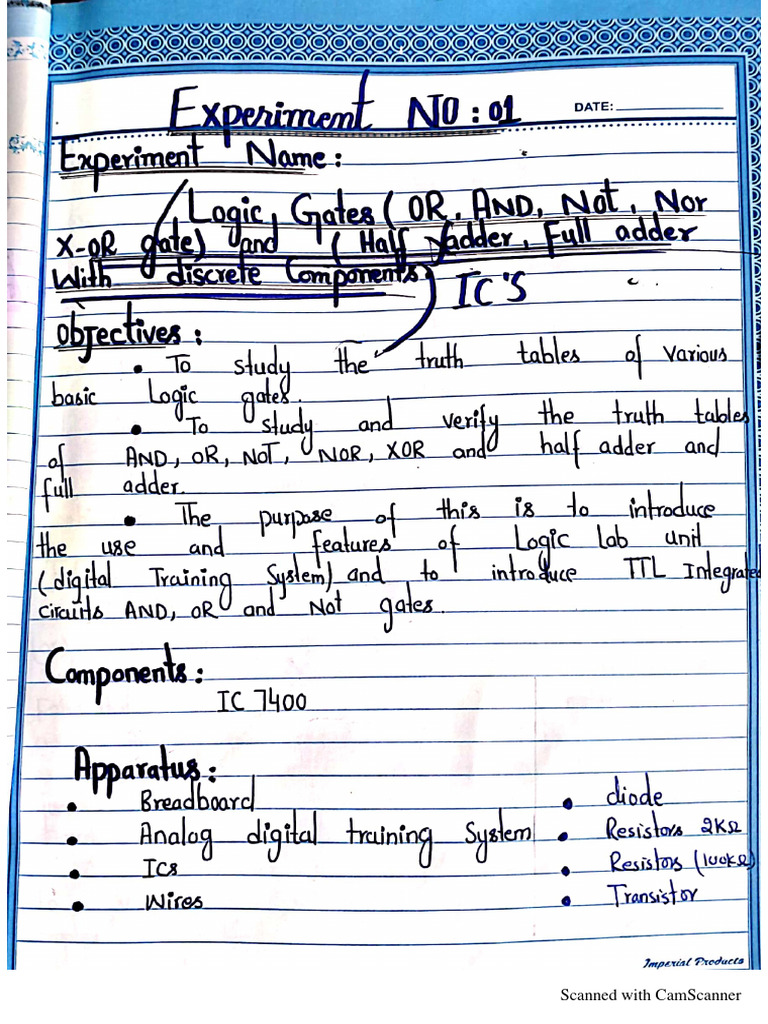 Experiment NO : 01
DATE:
Experiment Name :
Logic Gates ( OR, AND, Not, Nor
X-OR gate) and ( Half adder, Full adder
With discrete Components) IC'S
Objectives :
• To study the truth tables of various
basic Logic gates.
• To study and verify the truth tables
of AND, OR, NOT, NOR, XOR and half adder and
full adder.
• The purpose of this is to introduce
the use and features of Logic lab unit
(digital Training System) and to introduce TTL Integrated
circuits AND, OR and Not gates.
Components :
IC 7400
Apparatus :
• Breadboard • diode
• Analog digital training System • Resistors 2KΩ
• ICs • Resistors (100KΩ)
• Wires • Transistor
Imperial Products
Scanned with CamScanner